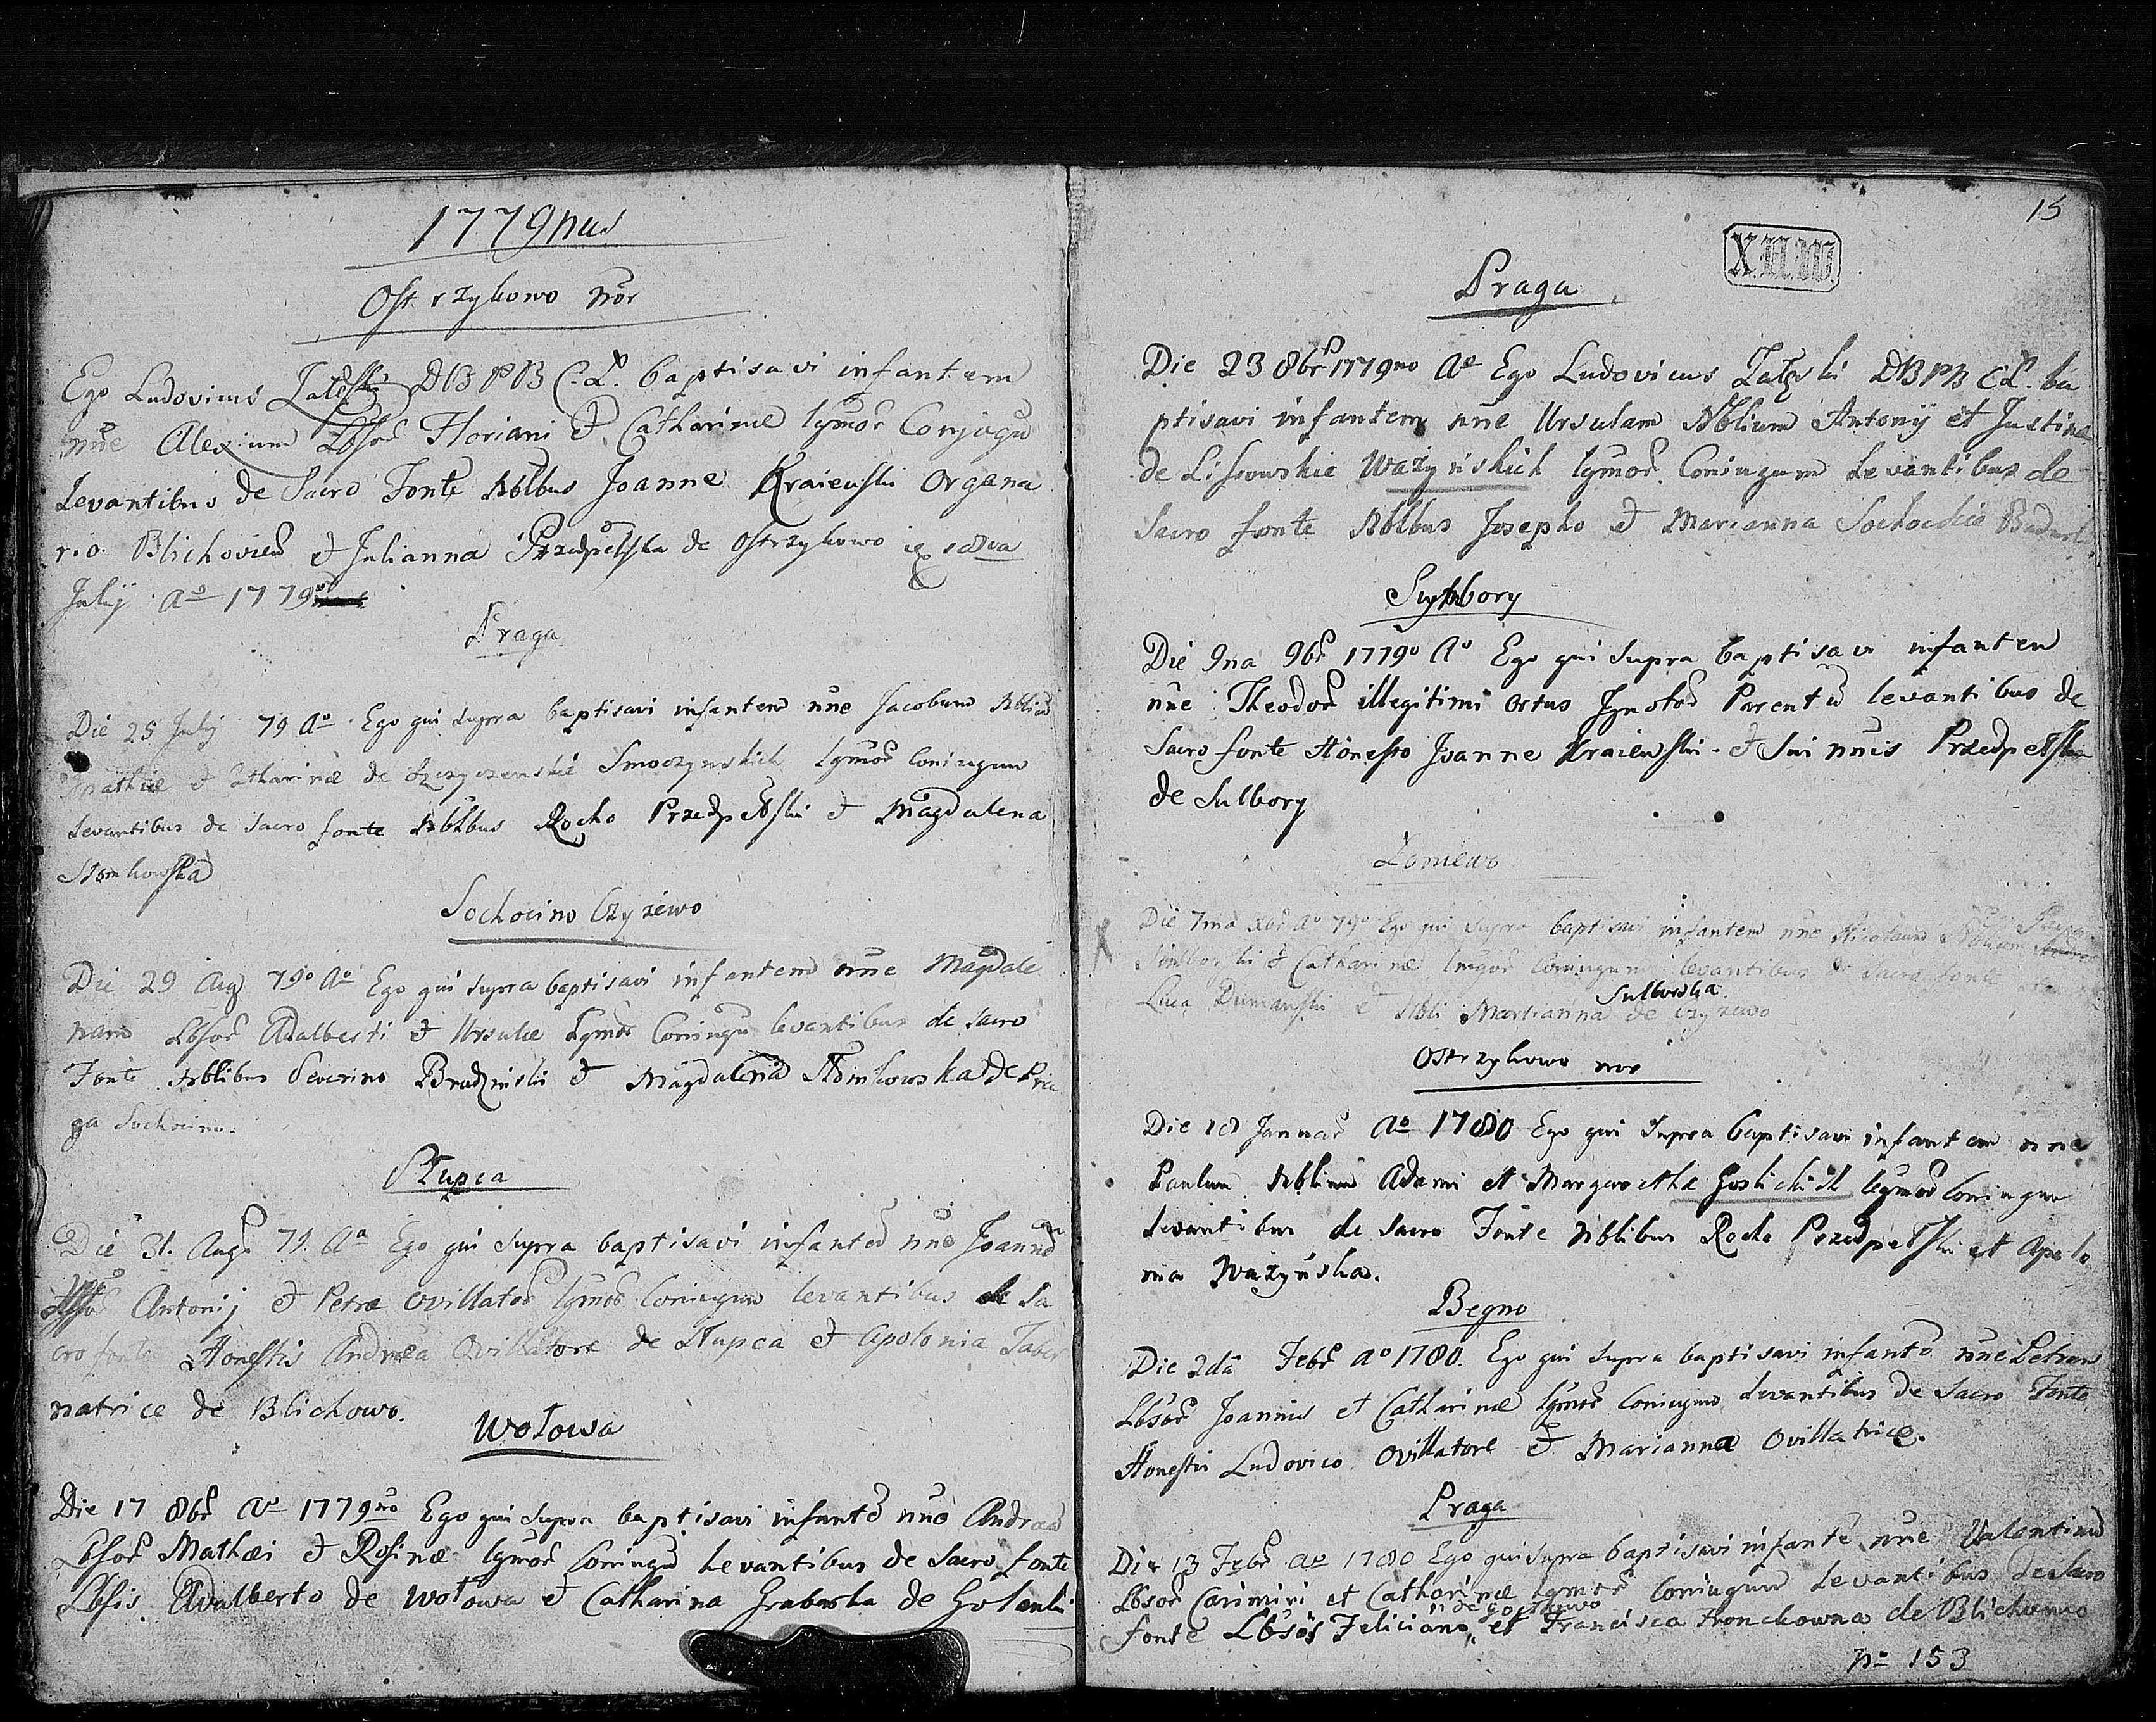 1779nus
Ostrzykowo nõr
Ego Ludovicus DBPB C.L. baptisavi infantem
nñe Alexium Lbsor Floriani et Catharinæ lgmor Conjugu
Levantibus de Sacro Fonte Nblbus Joanne Kraiewski Organa
rio Blichovien et Julianna Przedpelska de Ostrzykowo
July Ao 1779
Praga
Die 25 July 79 Ao Ego qui supra baptisavi infantem nñe Jacobum Nblium
Mathiæ et Smoczynskich lgmor Coniugum
Levantibus de Sacro fonte Nblbus Rocho Przedpełski et Magdalena
Słomkowska
Sochocino Czyżewo
Die 29 Aug 79o Ao Ego qui supra baptisavi infantem nñe Magdale
nam Lbsor Adalberti et Ursulæ Lgmor Coniugu levantibus de sacro
Fonte Nblibus Severino Brudzinski et Magdalena Słomkowska de Pra
ga Sochocino.
Słupca
Die 31. Augo 79. Ao Ego qui supra baptisavi infantem nñe Joannem
Antonij et Petræ Ovillator lgmor Coniugum levantibus de Sa
cro fonte Honestis Andræa Ovillatore de Słupca et Apolonia Taber
natrice de Blichowo.
Wołowa
Die 17 8br Ao 1779no Ego qui supra baptisavi infante nñe Andream
Lbsor Mathæi et Rosinæ lgmor Coniugu Levantibus de Sacro fonte
Lbsis Adalberto de Wołowa et Catharina Grabarka de
15
X.U.W.
Praga
Die 23 8br 1779no Ao Ego Ludovicus DBPB CL. ba
ptisavi infantem nñe Ursulam Nblium Antonij et Justinæ
de Lissowskie Ważyńskich lgmor Coniugum Levantibus de
Sacro fonte Nblbus Josepho et Marianna Sochockie
Sulbory
Die 9na 9br 1779o Ao Ego qui supra baptisavi infantem
nñe Theodor illegitimi ortus Ignotor Parentu levantibus de
Sacro fonte Honesto Joanne Kraiewski et Przedpełska
de Sulbory
Zomewo
Die 7ma Xbr Ao 79o Ego qui supra baptisavi infantem nñe Nicolaum
et Catharinæ lmgor Coniugum levantibus de Sacro fonte
Luca Dumanski et Nbli Marianna Sulborska de Czyzewo
Ostrzykowo nor
Die 18 Januar Ao 1780 Ego qui supra baptisavi infantem nne
Paulum Nblium Adami et Margarethæ Goslickich lgmor Coniugum
levantibus de Sacro Fonte Nblibus Rocho Przedpełski et Apolo
nia Ważyńska.
Begno
Die 2dâ Febr Ao 1780. Ego qui supra baptisavi infante nñe Petrum
Lbsor Joannis et Catharinæ lgmor Coniugum levantibus de Sacro Fonte
Honestis Ludovico Ovillatore et Marianna Ovillatrice.
Praga
Die 13 Febr Ao 1780 Ego qui supra baptisavi infante nñe Valentinum
Lbsor Casimiri et Catharinæ lgmor Coniugum Levantibus de Sacro
fonte Lbsös Feliciano et Francisca Fronckowna de Blichowo
no 153